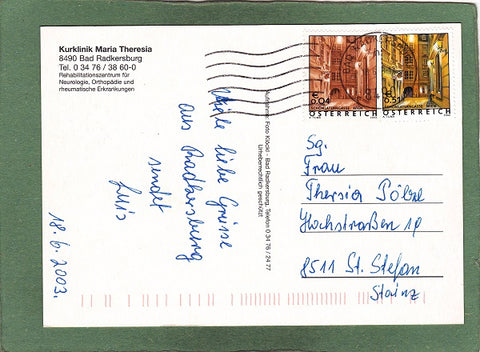 Kurklinik Maria Theresia
8490 Bad Radkersburg
Tel. 0 34 76 / 38 60-0
Rehabilitationszentrum für
Neurologie, Orthopädie und
rheumatische Erkrankungen
Viele liebe Grüsse
aus Radkersburg
sendet
Luis
18.6.2003.
Aufnahme: Foto Klöckl - Bad Radkersburg, Telefon 0 34 76 / 24 77
Urheberrechtlich geschützt
€ 0,04
ÖSTERREICH
€ 0,51
ÖSTERREICH
Sg.
Frau
Thersia
Hochstraßen 19
8511 St. Stefan
Stainz